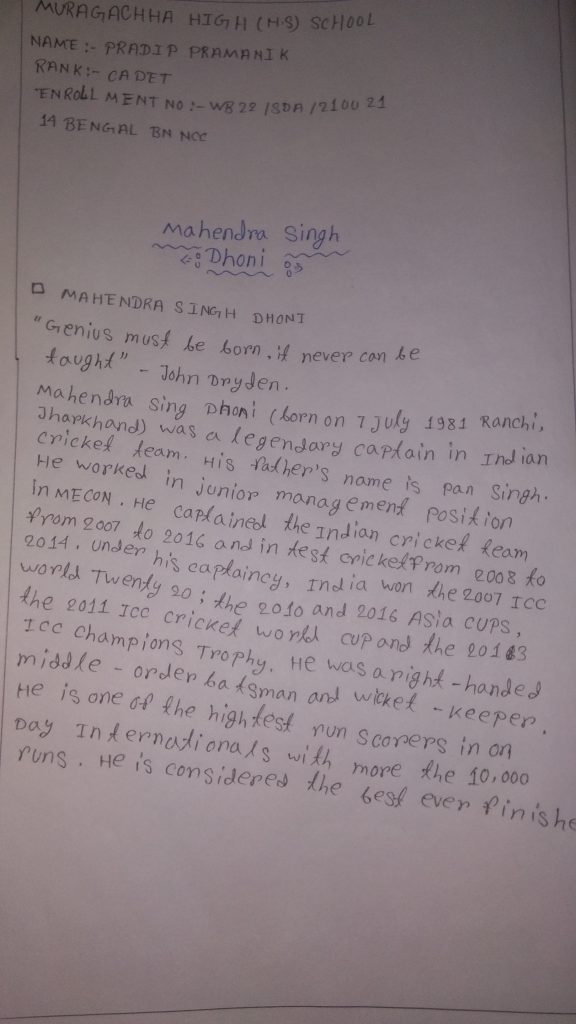 MURAGACHHA HIGH (H.S) SCHOOL
NAME :- PRADIP PRAMANIK
RANK:- CADET
ENROLL MENT NO :- WB22/SDA/210021
14 BENGAL BN NCC
Mahendra Singh
Dhoni
MAHENDRA SINGH DHONI
"Genius must be born, it never can be
taught" - John Dryden.
Mahendra Sing Dhoni (born on 7 July 1981 Ranchi,
Jharkhand) was a legendary captain in Indian
cricket team. His father's name is pan Singh.
He worked in junior management position
in MECON. He captained the Indian cricket team
from 2007 to 2016 and in test cricket from 2008 to
2014. under his captaincy, India won the 2007 ICC
world Twenty 20; the 2010 and 2016 Asia cups,
the 2011 ICC cricket world cup and the 2013
ICC champions Trophy. He was a right-handed
middle-order batsman and wicket-keeper.
He is one of the hightest run scorers in on
Day Internationals with more the 10,000
runs. He is considered the best ever finishe